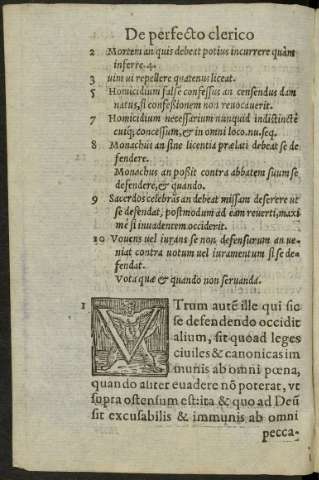 De perfecto clerico
2 Mortem an quis debeat potius incurrere quàm
inferre. 4.
3 uim ui repellere quatenus liceat.
5 Homicidium false confessus an censendus dam
natus, si confeßionem non reuocauerit.
7 Homicidium necessarium nunquid indistinctè
cuiq; concessum, & in omni loco. nu. seq.
8 Monachus an sine licentia prælati debeat se de
fendere.
Monachus an poßit contra abbatem suum se
defendere, & quando.
9 Sacerdos celebrãs an debeat missam deserere ut
se defendat, postmodum ad eam reuerti, maxi
mè si inuadentem occiderit.
10 Vouens uel iurans se non defensurum an ue-
niat contra uotum uel iuramentum si se de-
fendat.
Vota quæ & quando non seruanda.
1 VTrum autẽ ille qui sic
se defendendo occidit
alium, sit quoad leges
ciuiles & canonicas im
munis ab omni pœna,
quando aliter euadere nõ poterat, vt
supra ostensum est: ita & quo ad Deũ
sit excusabilis & immunis ab omni
pecca-